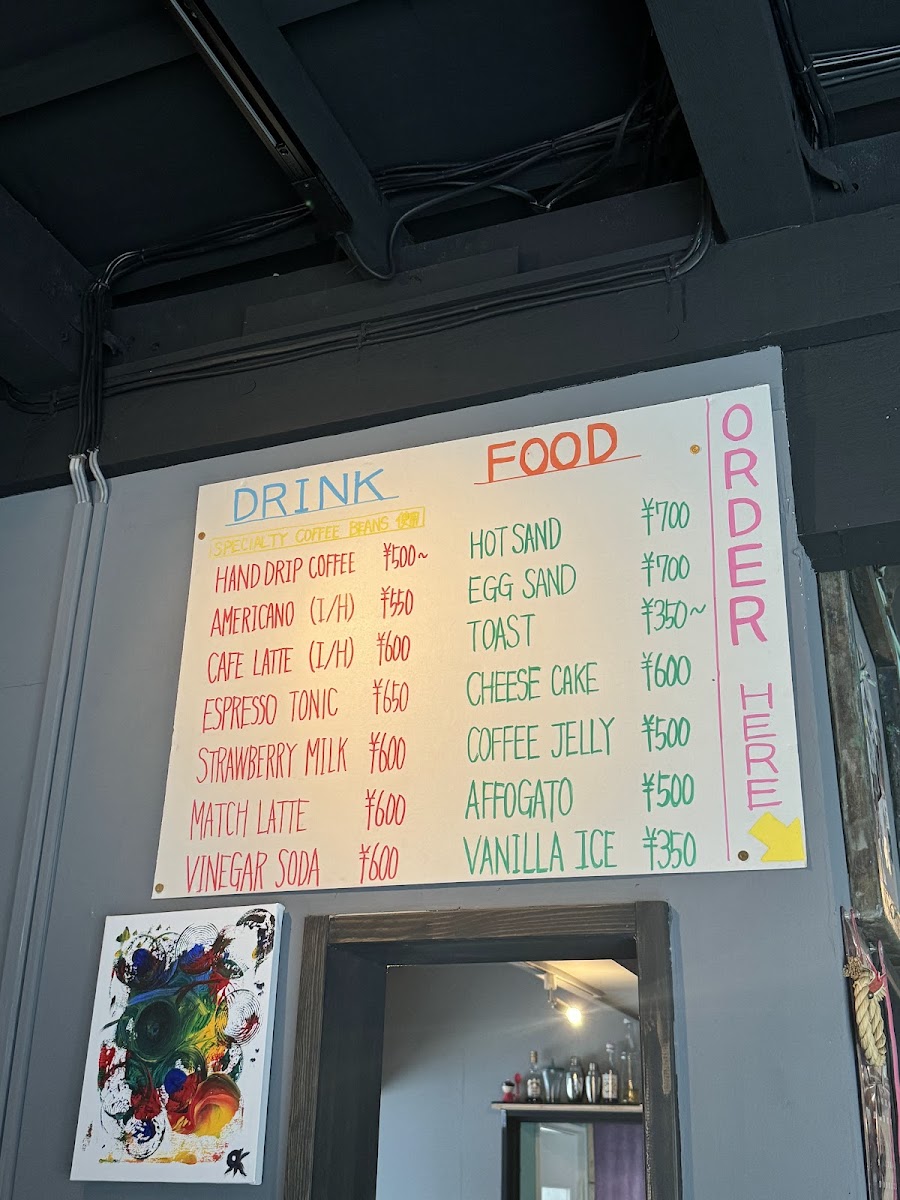 DRINK
SPECIALTY COFFEE BEANS 使用
HAND DRIP COFFEE ¥500~
AMERICANO (I/H) ¥550
CAFE LATTE (I/H) ¥600
ESPRESSO TONIC ¥650
STRAWBERRY MILK ¥600
MATCH LATTE ¥600
VINEGAR SODA ¥600
FOOD
HOT SAND ¥700
EGG SAND ¥700
TOAST ¥350~
CHEESE CAKE ¥600
COFFEE JELLY ¥500
AFFOGATO ¥500
VANILLA ICE ¥350
ORDER HERE